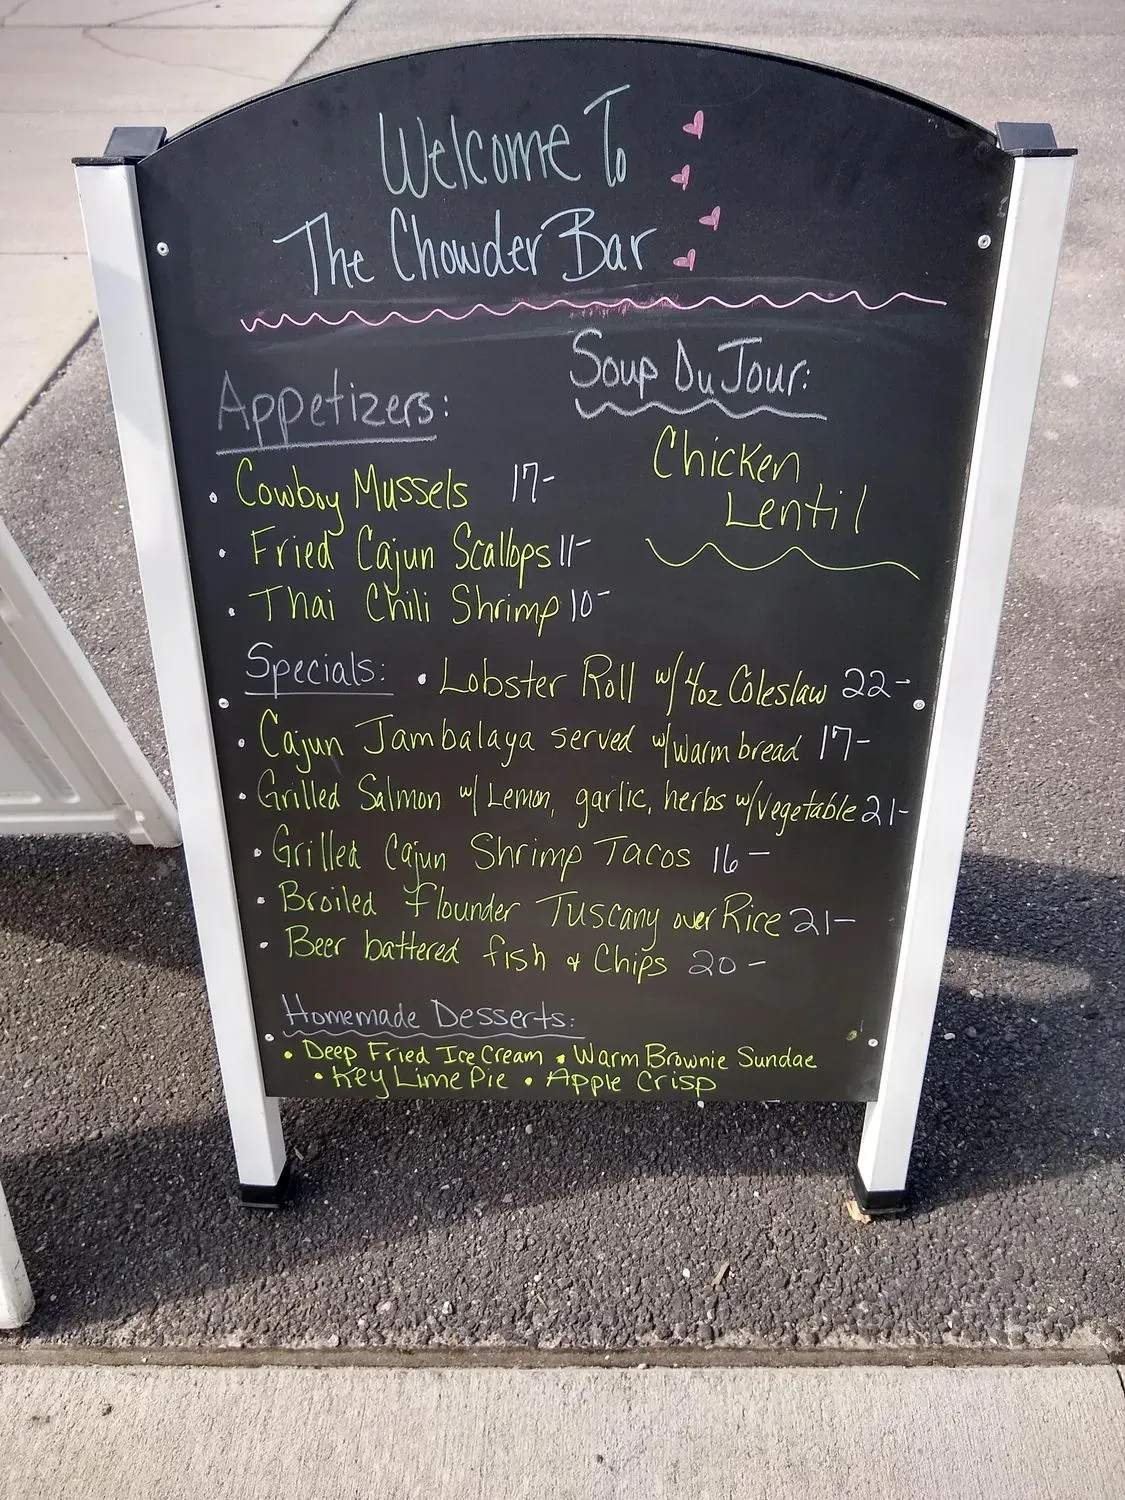 Welcome To
The Chowder Bar
Soup Du Jour:
Chicken
Lentil
Appetizers:
• Cowboy Mussels 17-
• Fried Cajun Scallops 11-
• Thai Chili Shrimp 10-
Specials: • Lobster Roll w/ 4oz Coleslaw 22-
• Cajun Jambalaya served w/warm bread 17-
• Grilled Salmon w/ Lemon, garlic, herbs w/vegetable 21-
• Grilled Cajun Shrimp Tacos 16-
• Broiled flounder Tuscany over Rice 21-
• Beer battered fish & Chips 20-
Homemade Desserts:
• Deep Fried Ice Cream • Warm Brownie Sundae
• Key Lime Pie • Apple Crisp